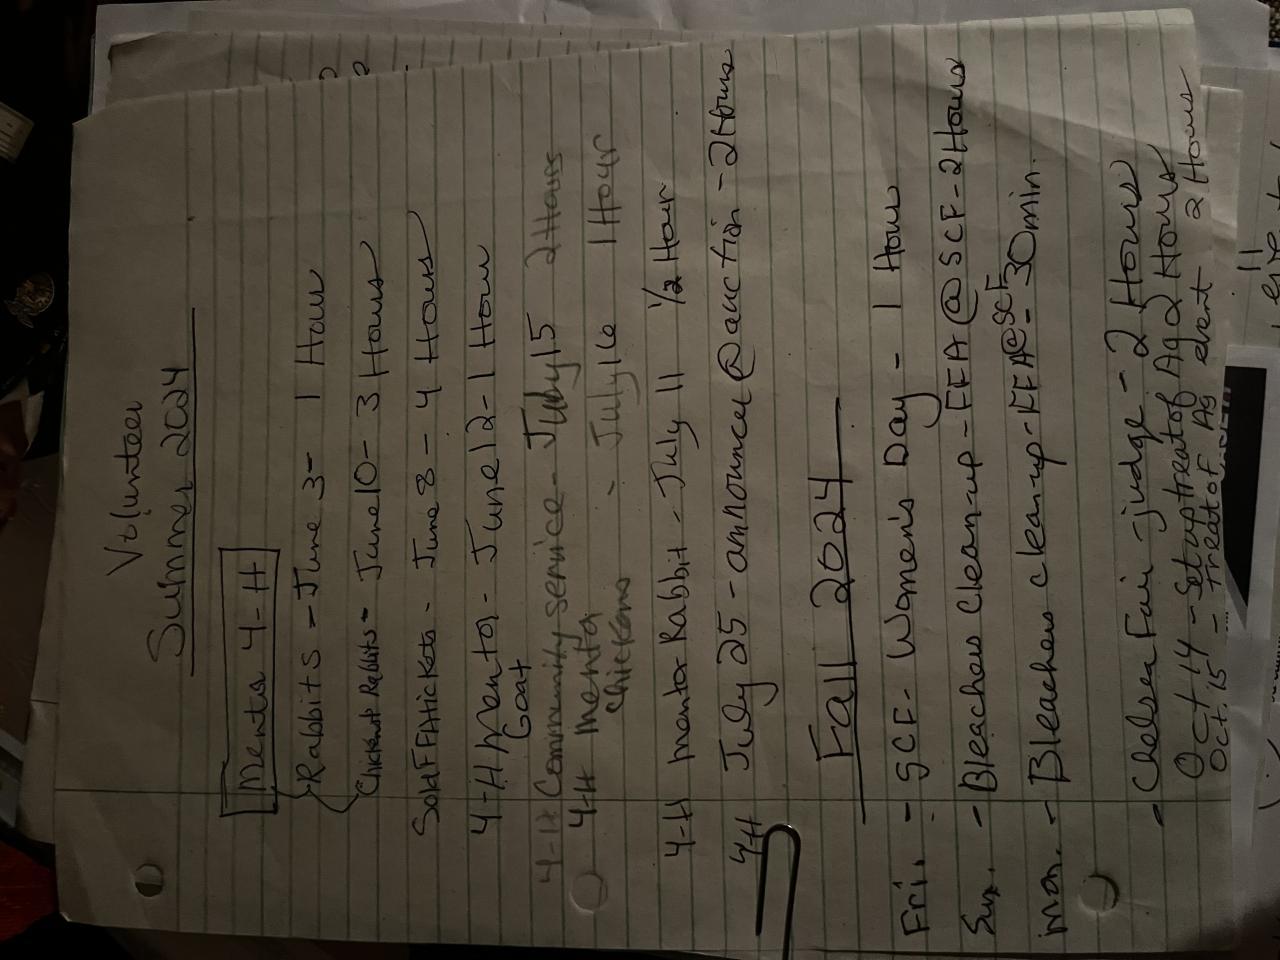 Volunteer
Summer 2024
Mentor 4-H
Rabbits - June 3 - 1 Hour
Chicken & Rabbits - June 10 - 3 Hours
Sold FFA tickets - June 8 - 4 Hours
4-H Mentor - June 12 - 1 Hour
Goat
4-H Community service - July 15 2 Hours
4-H mentor - July 16 1 Hour
chickens
4-H mentor Rabbit - July 11 1/2 Hour
4H July 25 - announcer @ auction - 2 Hours
Fall 2024
Fri. - SCF - Women's Day - 1 Hour
Sun. - Bleachers Clean-up - FFA @ SCF - 2 Hours
Mon. - Bleachers clean-up - FFA @ SCF - 30 min.
- Chelsea Fair - judge - 2 Hours
Oct 14 - Set up treat of Ag 2 Hours
Oct. 15 - treat of Ag event 2 Hours